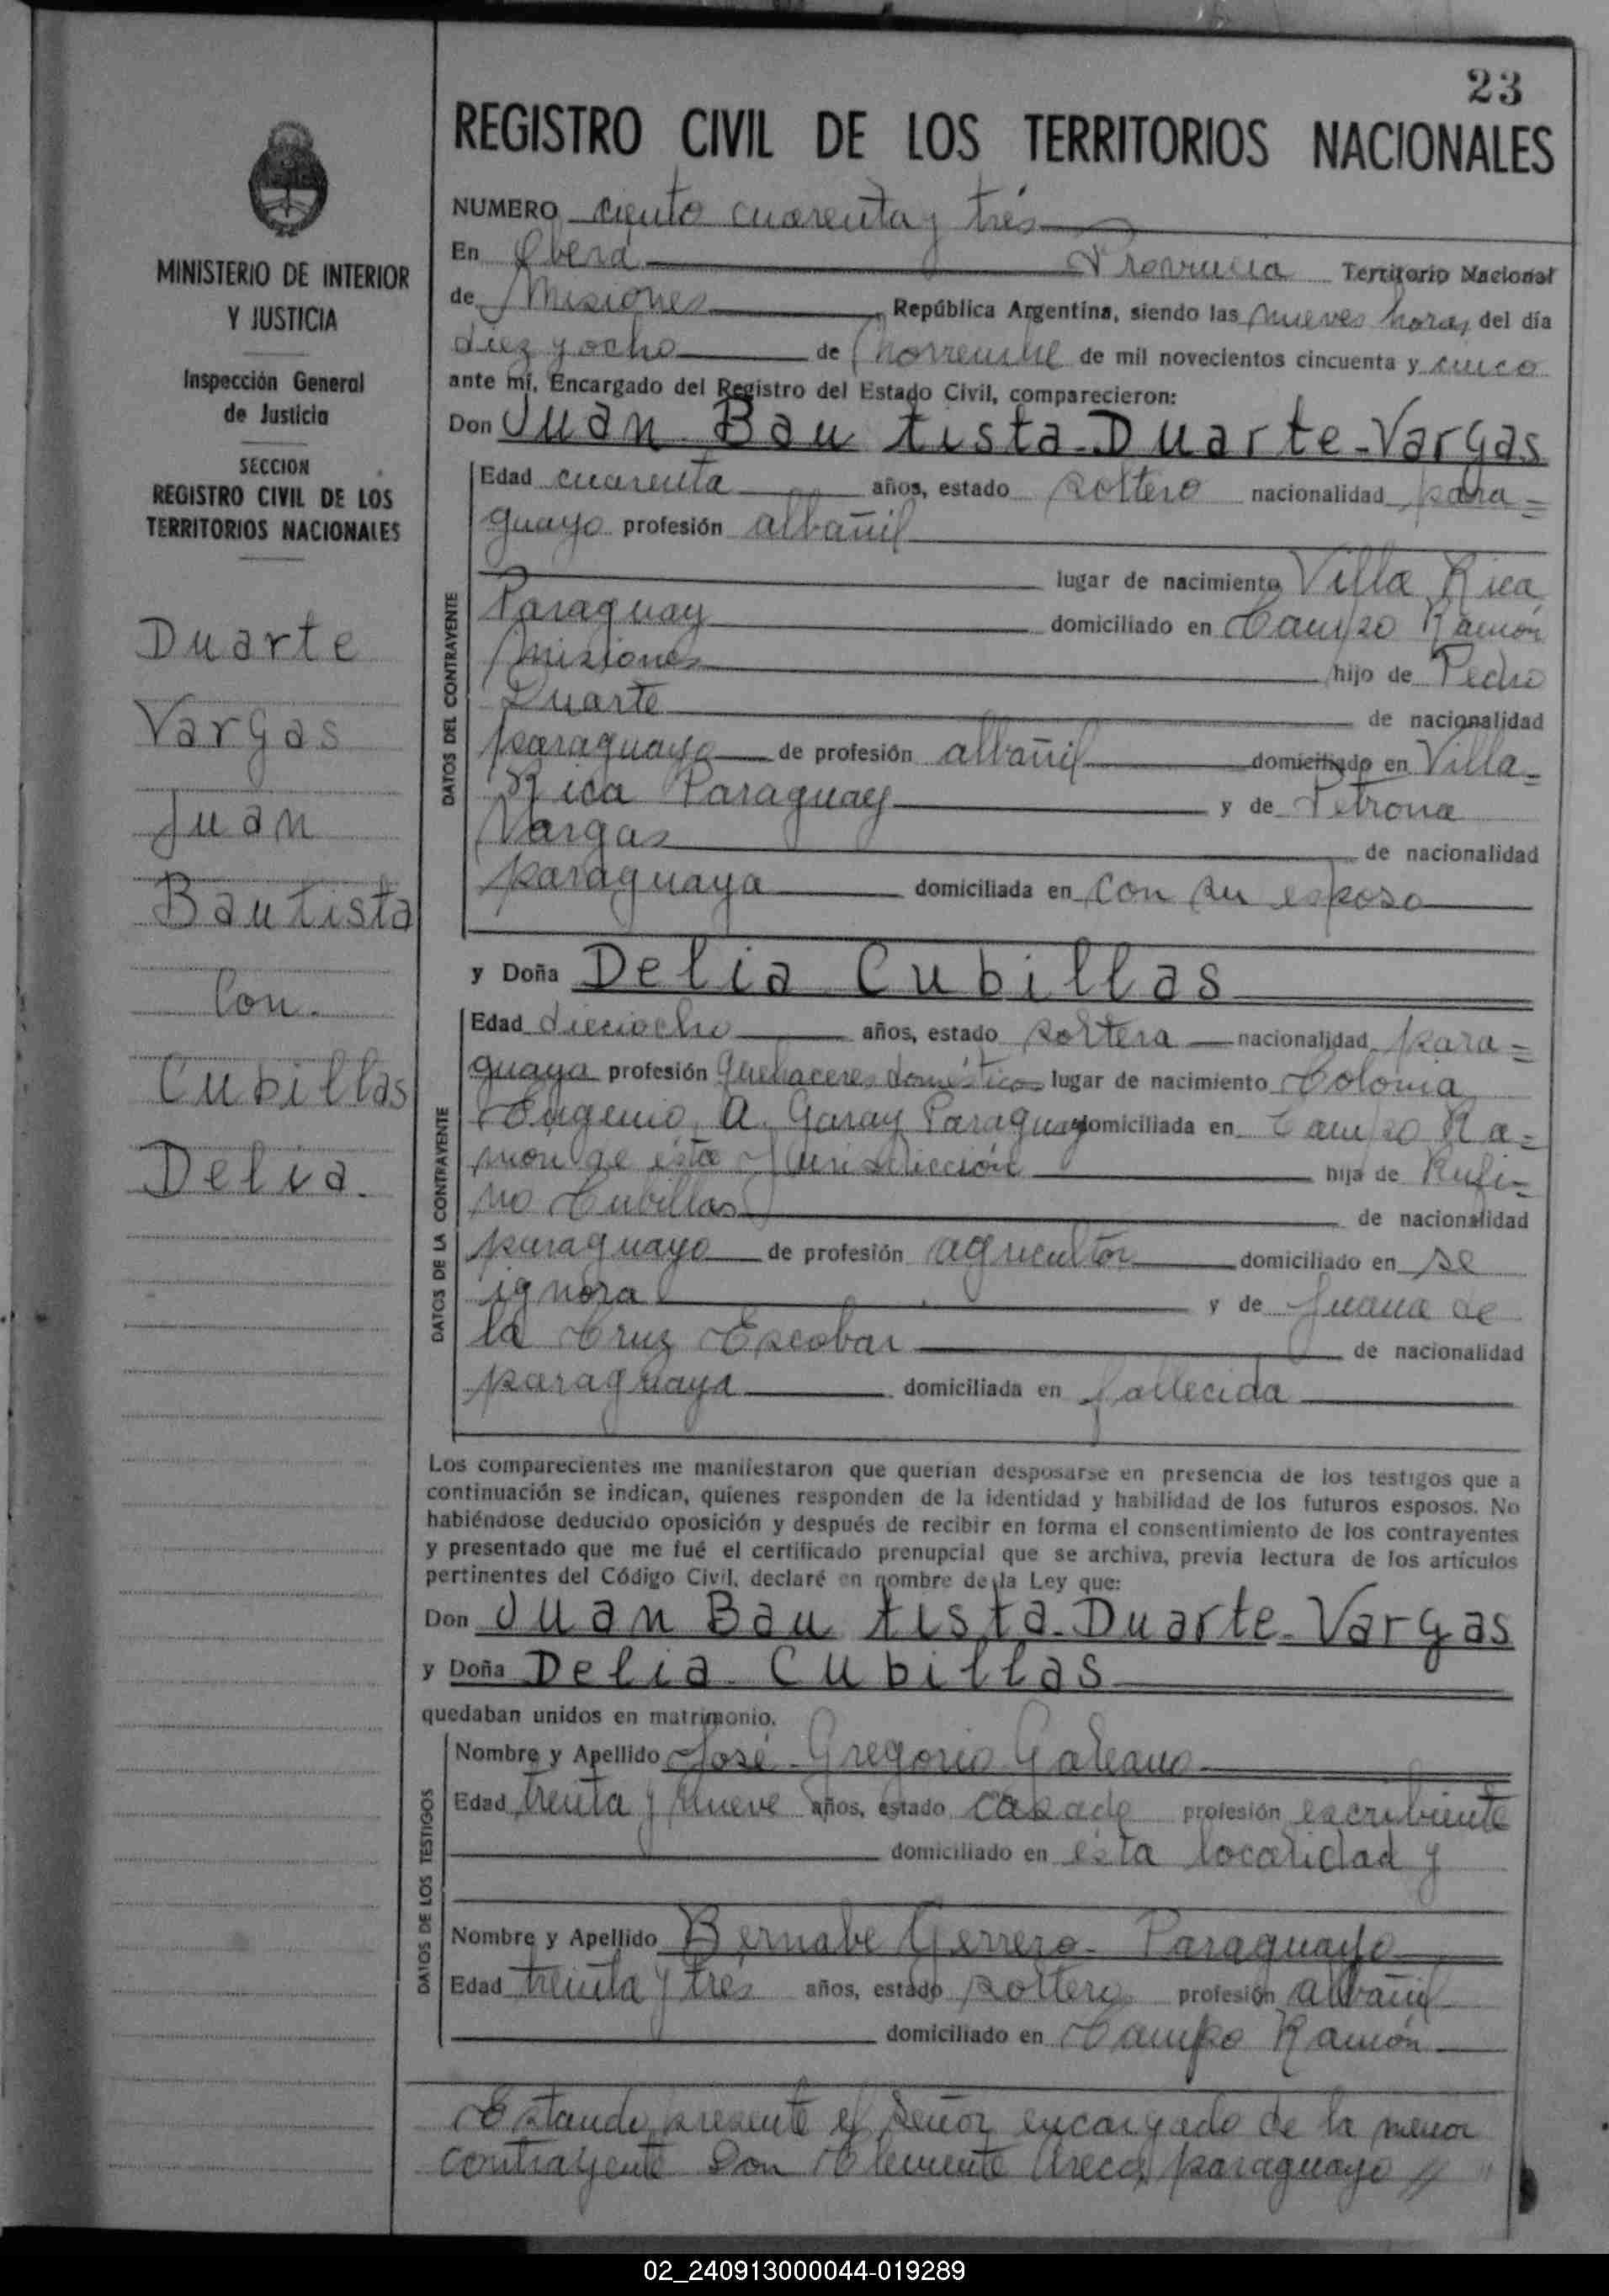 23
REGISTRO CIVIL DE LOS TERRITORIOS NACIONALES
MINISTERIO DE INTERIOR
Y JUSTICIA
Inspección General
de Justicia
SECCION
REGISTRO CIVIL DE LOS
TERRITORIOS NACIONALES
Duarte
Vargas
Juan
Bautista
Con.
Cubillas
Delia.
NUMERO ciento cuarenta y trés
En Oberá Provincia Territorio Nacional
de Misiones República Argentina, siendo las nueves horas del día
diez y ocho de noviembre de mil novecientos cincuenta y cinco
ante mí, Encargado del Registro del Estado Civil, comparecieron:
Don Juan Bautista-Duarte-Vargas
DATOS DEL CONTRAYENTE
Edad cuarenta años, estado soltero nacionalidad para=
guayo profesión albañil
lugar de nacimiento Villa Rica
Paraguay domiciliado en Campo Ramón
Misiones hijo de Pedro
Duarte de nacionalidad
paraguayo de profesión albañil domiciliado en Villa=
Rica Paraguay y de Petrona
Vargas de nacionalidad
paraguaya domiciliada en con su esposo
y Doña Delia Cubillas
DATOS DE LA CONTRAYENTE
Edad dieciocho años, estado soltera nacionalidad para=
guaya profesión quehaceres domésticos lugar de nacimiento Colonia
Eugenio A. Garay Paraguay domiciliada en Campo Ra=
mon de ésta Jurisdicción hija de Rufi=
no Cubillas de nacionalidad
paraguayo de profesión agricultor domiciliado en se
ignora y de Juana de
la Cruz Escobar de nacionalidad
paraguaya domiciliada en fallecida
Los comparecientes me manifestaron que querían desposarse en presencia de los testigos que a
continuación se indican, quienes responden de la identidad y habilidad de los futuros esposos. No
habiéndose deducido oposición y después de recibir en forma el consentimiento de los contrayentes
y presentado que me fué el certificado prenupcial que se archiva, previa lectura de los artículos
pertinentes del Código Civil, declaré en nombre de la Ley que:
Don Juan Bautista-Duarte-Vargas
y Doña Delia Cubillas
quedaban unidos en matrimonio.
DATOS DE LOS TESTIGOS
Nombre y Apellido José Gregorio Galeano
Edad treinta y nueve años, estado casado profesión escribiente
domiciliado en ésta localidad y
Nombre y Apellido Bernabe Gerrero- Paraguayo
Edad treinta y trés años, estado soltero profesión albañil
domiciliado en Campo Ramón
Estando presente el señor encargado de la menor
contrayente Don Clemente paraguayo //
02_240913000044-019289